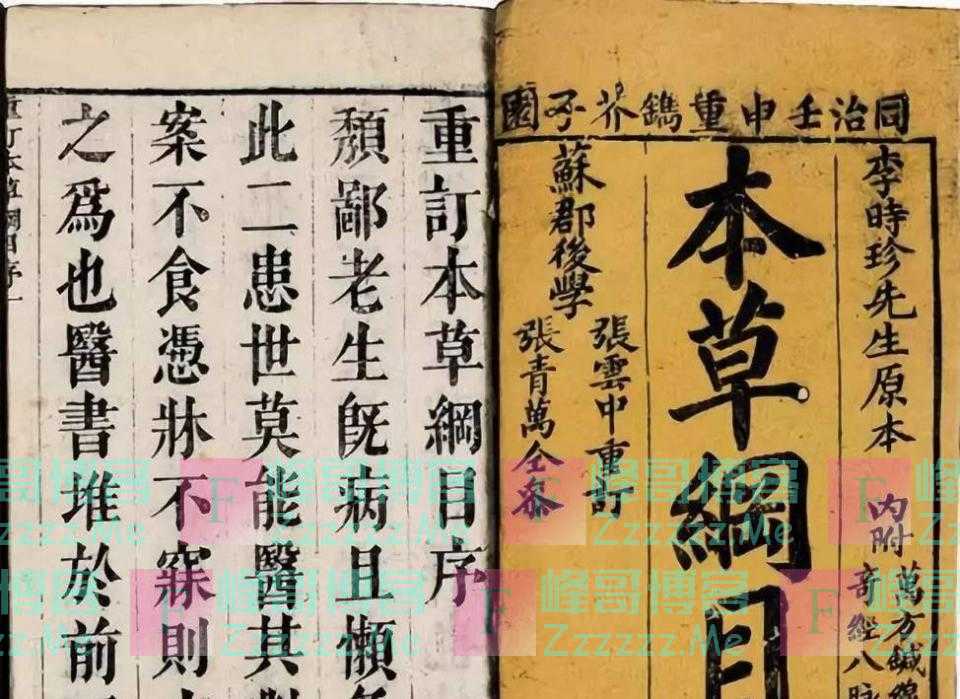 同治壬申重鐫芥子園
李時珍先生原本
內附
萬方鍼
奇經八脉
本草綱目
蘇郡後學
張雲中重訂
張青萬仝參
重訂本草綱目序
頽鄙老生旣病且懶
此二患世莫能醫其
案不食憑牀不寐則
之爲也醫書堆於前
重訂本草綱目序一
峰哥博客
Zzzzzz.Me
峰哥博客
Zzzzzz.Me
峰哥博客
Zzzzzz.Me
峰哥博客
Zzzzzz.Me